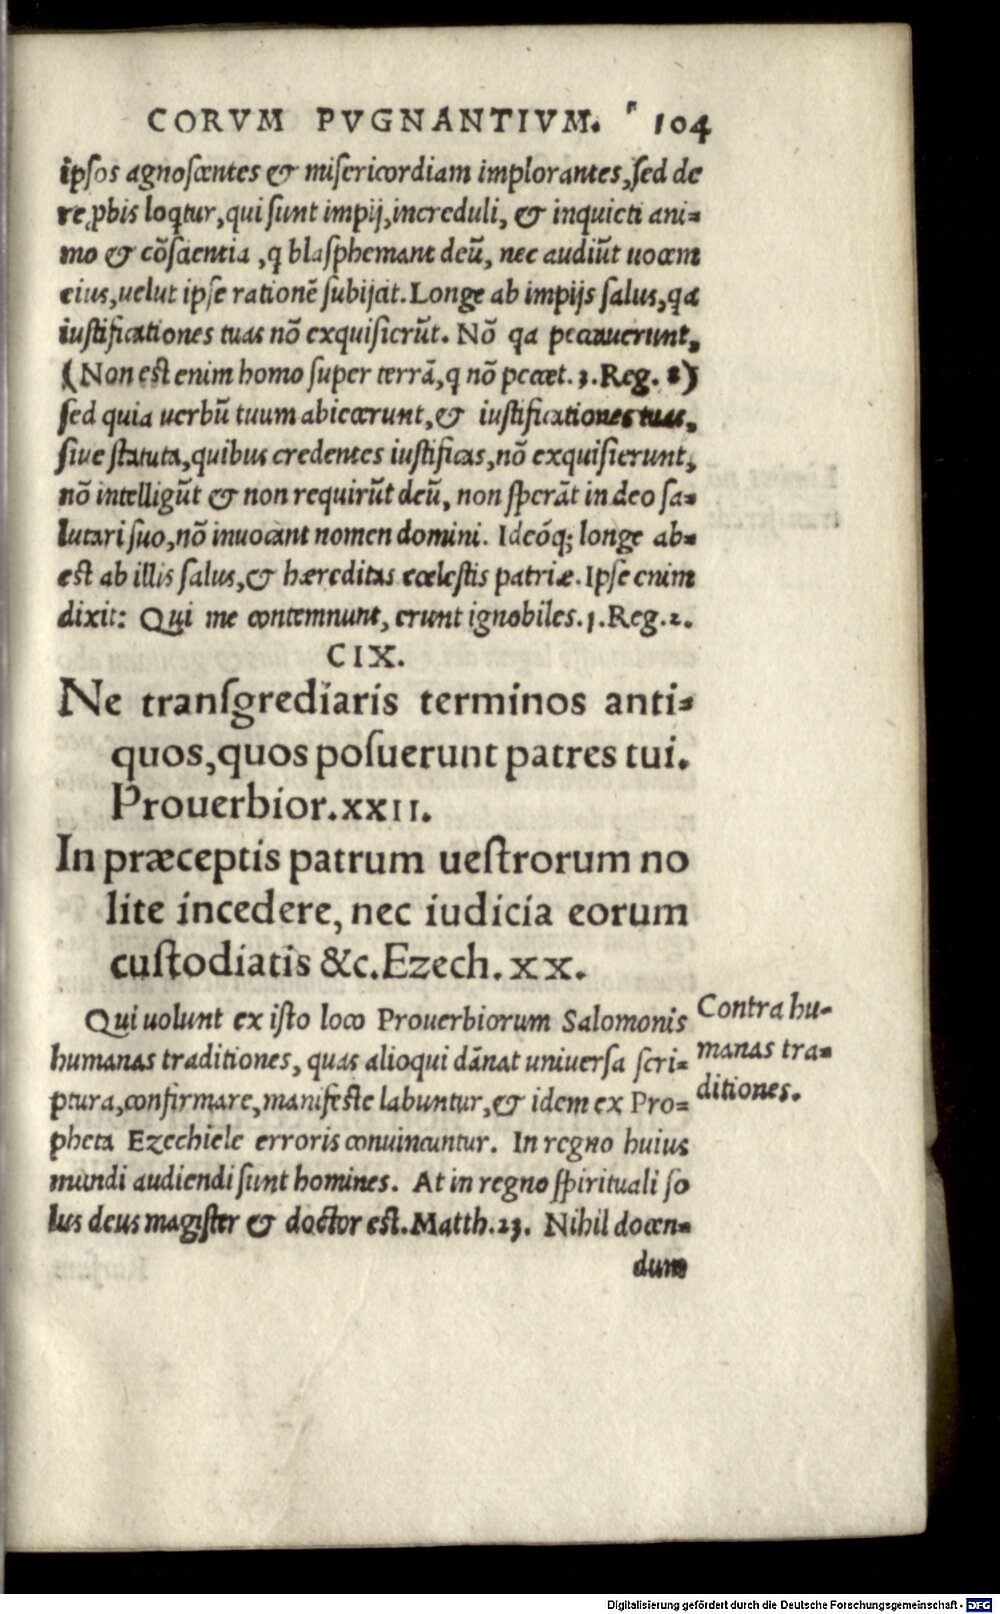 CORVM PVGNANTIVM. 104
ipſos agnoſcentes & miſericordiam implorantes, ſed de
reꝓbis loqͥtur, qui ſunt impij, increduli, & inquieti ani=
mo & cõſcientia, q blaſphemant deũ, nec audiũt uocem
eius, uelut ipſe rationẽ ſubijcit. Longe ab impijs ſalus, qa
iuſtificationes tuas nõ exquiſierũt. Nõ qa peccauerunt,
(Non eſt enim homo ſuper terrã, q nõ peccet. 3. Reg. 8)
ſed quia uerbũ tuum abiecerunt, & iuſtificationes tuas,
ſiue ſtatuta, quibus credentes iuſtificas, nõ exquiſierunt,
nõ intelligũt & non requirũt deũ, non ſperãt in deo ſa=
lutari ſuo, nõ inuocant nomen domini. Ideóq; longe ab=
eſt ab illis ſalus, & hæreditas cœleſtis patriæ. Ipſe enim
dixit: Qui me contemnunt, erunt ignobiles. 1. Reg. 2.
CIX.
Ne tranſgrediaris terminos anti=
quos, quos poſuerunt patres tui.
Prouerbior. XXII.
In præceptis patrum ueſtrorum no
lite incedere, nec iudicia eorum
cuſtodiatis &c. Ezech. XX.
Qui uolunt ex iſto loco Prouerbiorum Salomonis
humanas traditiones, quas alioqui dãnat uniuerſa ſcri=
ptura, confirmare, manifeſte labuntur, & idem ex Pro=
pheta Ezechiele erroris conuincuntur. In regno huius
mundi audiendi ſunt homines. At in regno ſpirituali ſo
lus deus magiſter & doctor eſt. Matth. 23. Nihil docen=
dum
Contra hu-
manas tra=
ditiones.
Digitalisierung gefördert durch die Deutsche Forschungsgemeinschaft - DFG